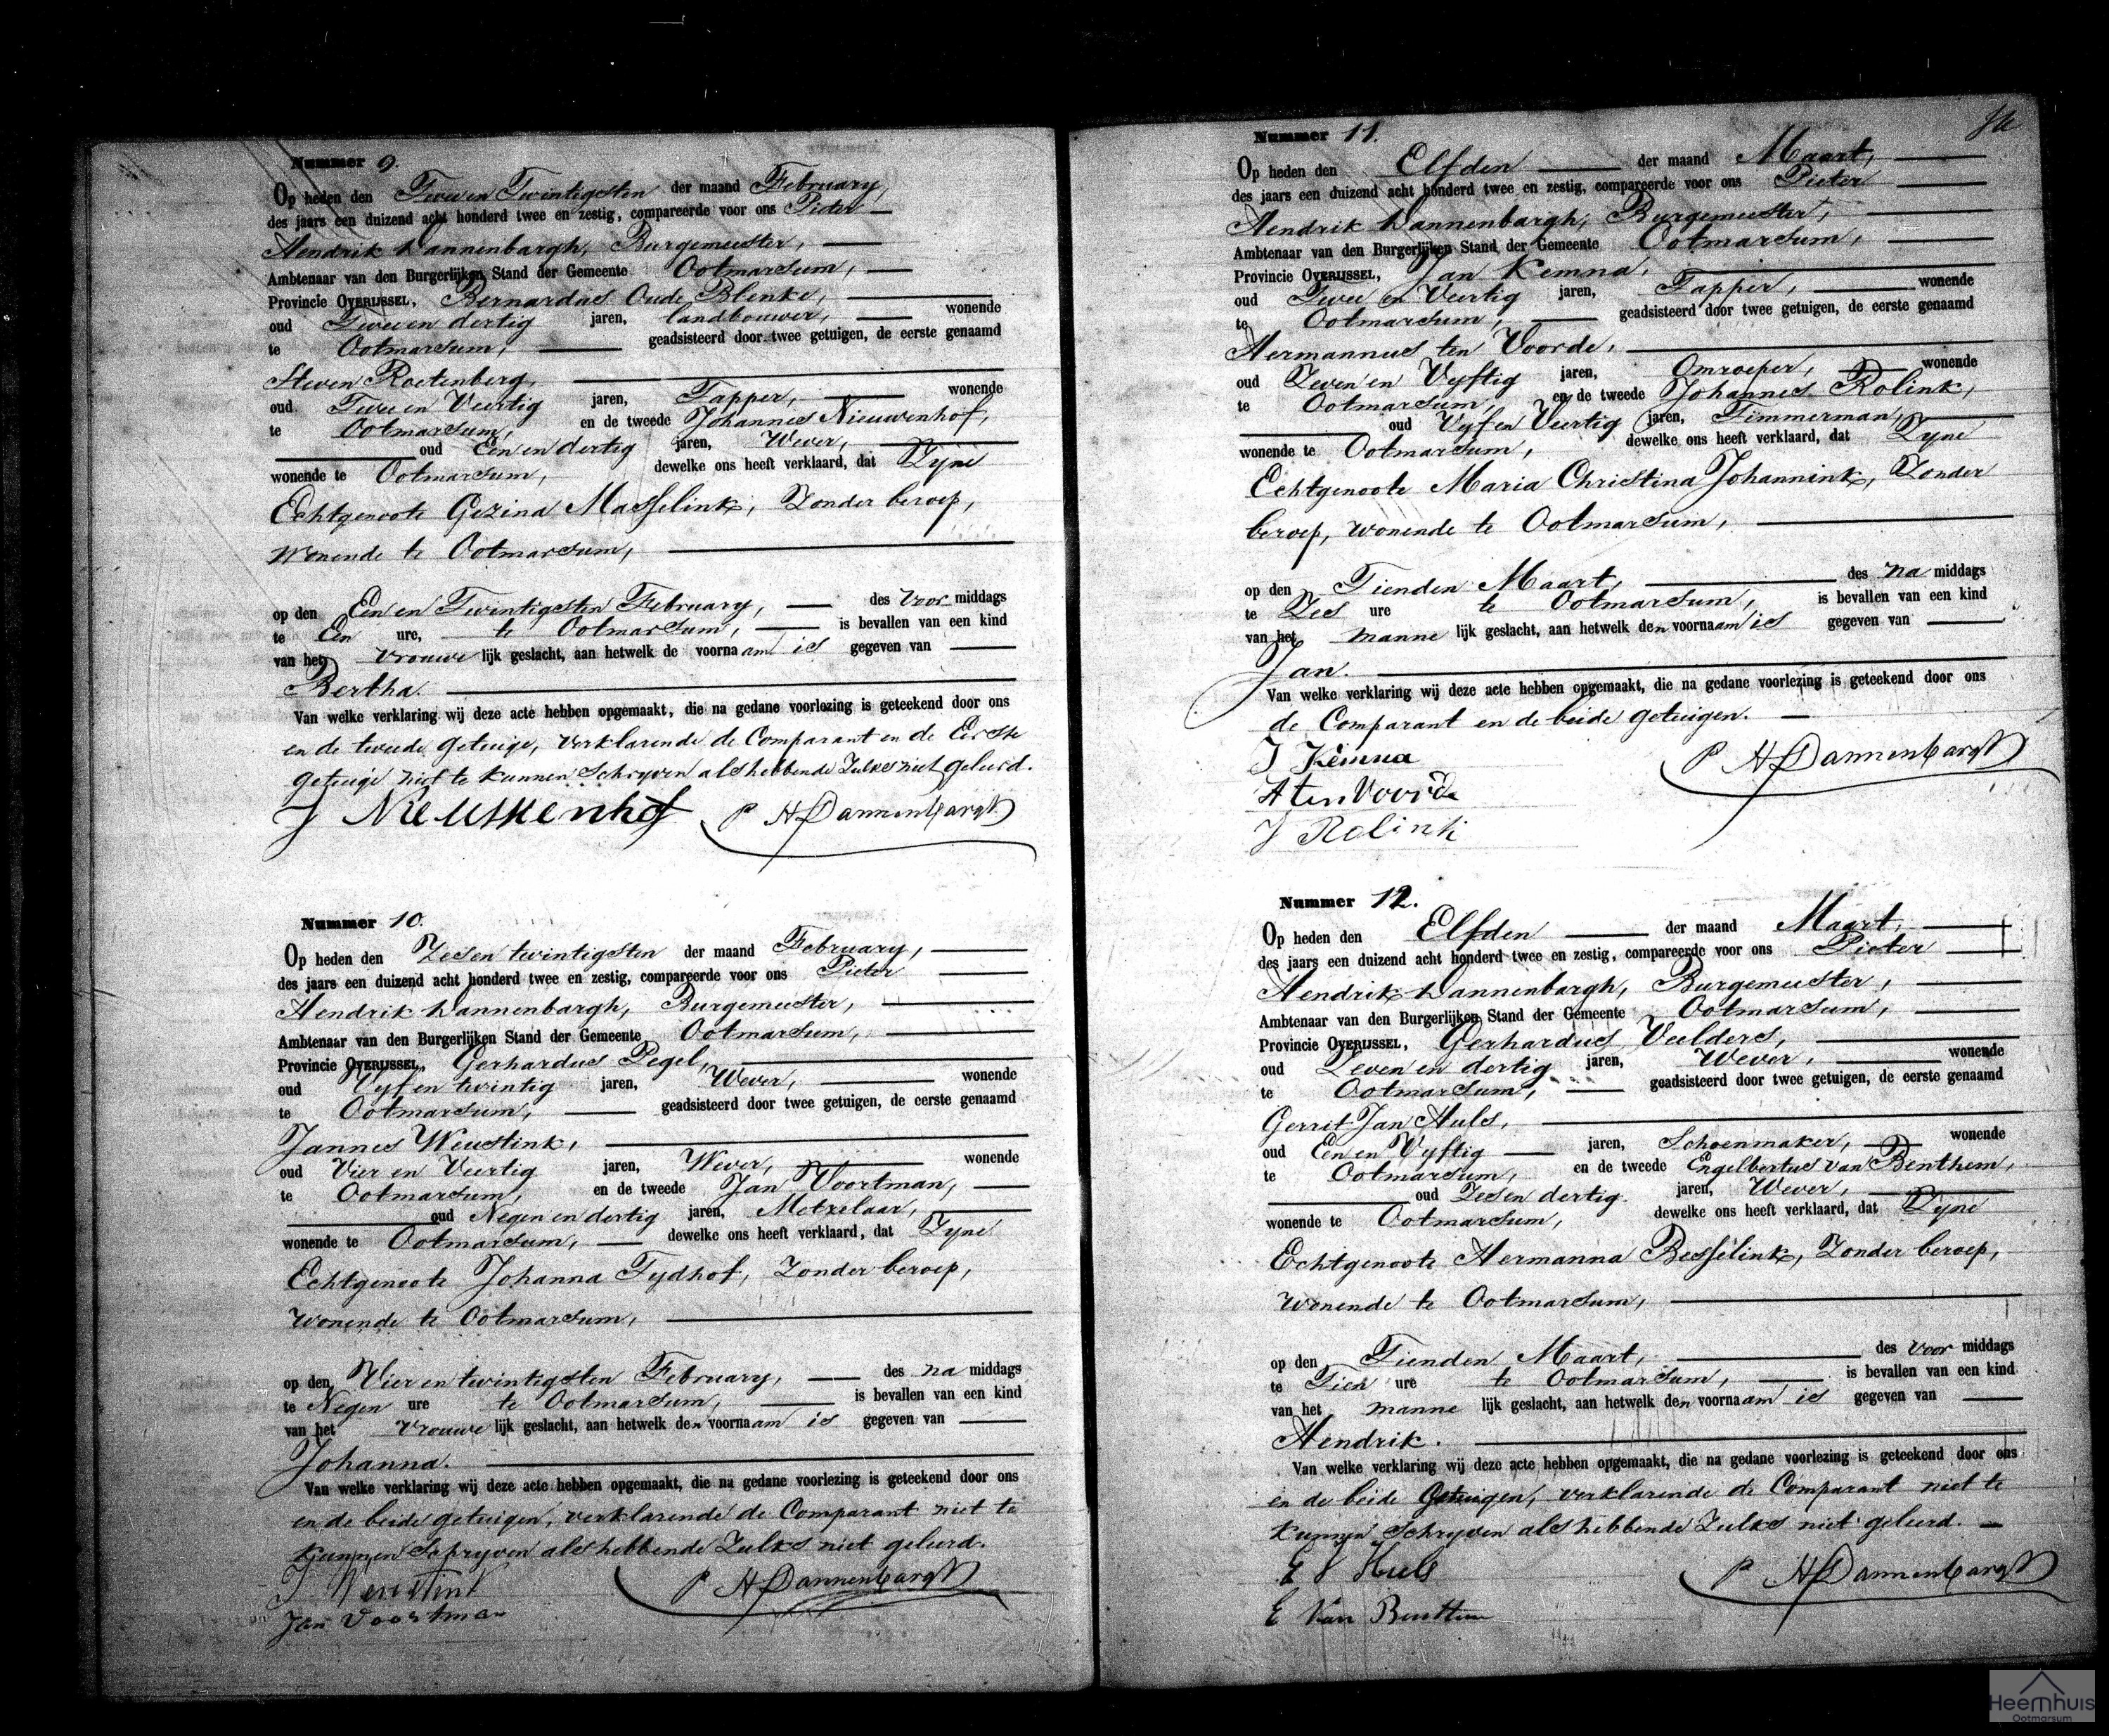 Nummer 9.
Op heden den Twee en Twintigsten der maand February,
des jaars een duizend acht honderd twee en zestig, compareerde voor ons Pieter
Hendrik Dannenbargh, Burgemeester,
Ambtenaar van den Burgerlijken Stand der Gemeente Ootmarsum,
Provincie OVERIJSSEL, Bernardus Oude Blenke,
oud Twee en dertig jaren, landbouwer, wonende
te Ootmarsum, geadsisteerd door twee getuigen, de eerste genaamd
Steven Roetenberg,
oud Twee en Veertig jaren, Tapper, wonende
te Ootmarsum, en de tweede Johannes Nieuwenhof,
oud Een en dertig jaren, Wever,
wonende te Ootmarsum, dewelke ons heeft verklaard, dat Zyne
Echtgenoote Gezina Masselink, Zonder beroep,
Wonende te Ootmarsum,
op den Een en Twintigsten February, des Voor middags
te Een ure, te Ootmarsum, is bevallen van een kind
van het vrouwe lijk geslacht, aan hetwelk de voorna am is gegeven van
Bertha.
Van welke verklaring wij deze acte hebben opgemaakt, die na gedane voorlezing is geteekend door ons
en de tweede getuige, verklarende de Comparant en de Eerste
getuige niet te kunnen Schryven als hebbende Zulks niet geleerd.
J Nieuwenhof P H Dannenbargh
Nummer 10.
Op heden den Zes en twintigsten der maand February,
des jaars een duizend acht honderd twee en zestig, compareerde voor ons Pieter
Hendrik Dannenbargh, Burgemeester,
Ambtenaar van den Burgerlijken Stand der Gemeente Ootmarsum,
Provincie OVERIJSSEL, Gerhardus Pegel,
oud Vyf en twintig jaren, Wever, wonende
te Ootmarsum, geadsisteerd door twee getuigen, de eerste genaamd
Jannes Weustink,
oud Vier en Veertig jaren, Wever, wonende
te Ootmarsum, en de tweede Jan Voortman,
oud Negen en dertig jaren, Metzelaar,
wonende te Ootmarsum, dewelke ons heeft verklaard, dat Zyne
Echtgenoote Johanna Tydhof, Zonder beroep,
Wonende te Ootmarsum,
op den Vier en twintigsten February, des na middags
te Negen ure te Ootmarsum, is bevallen van een kind
van het vrouwe lijk geslacht, aan hetwelk den voorna am is gegeven van
Johanna.
Van welke verklaring wij deze acte hebben opgemaakt, die na gedane voorlezing is geteekend door ons
en de beide getuigen, verklarende de Comparant niet te
kunnen Schryven als hebbende Zulks niet geleerd.
J Weustink P H Dannenbargh
Jan Voortman
Nummer 11.
Op heden den Elfden der maand Maart,
des jaars een duizend acht honderd twee en zestig, compareerde voor ons Pieter
Hendrik Dannenbargh, Burgemeester,
Ambtenaar van den Burgerlijken Stand der Gemeente Ootmarsum,
Provincie OVERIJSSEL, Jan Kemna,
oud Twee en Veertig jaren, Tapper, wonende
te Ootmarsum, geadsisteerd door twee getuigen, de eerste genaamd
Hermannus ten Voorde,
oud Zeven en Vyftig jaren, Omroeper, wonende
te Ootmarsum, en de tweede Johannes Rolink,
oud Vyf en Veertig jaren, Timmerman,
wonende te Ootmarsum, dewelke ons heeft verklaard, dat Zyne
Echtgenoote Maria Christina Johannink, Zonder
beroep, wonende te Ootmarsum,
op den Tienden Maart, des na middags
te Zes ure te Ootmarsum, is bevallen van een kind
van het manne lijk geslacht, aan hetwelk den voornaam is gegeven van
Jan.
Van welke verklaring wij deze acte hebben opgemaakt, die na gedane voorlezing is geteekend door ons
de Comparant en de beide getuigen.
J Kemna P H Dannenbargh
H ten Voorde
J Rolink
Nummer 12.
Op heden den Elfden der maand Maart,
des jaars een duizend acht honderd twee en zestig, compareerde voor ons Pieter
Hendrik Dannenbargh, Burgemeester,
Ambtenaar van den Burgerlijken Stand der Gemeente Ootmarsum,
Provincie OVERIJSSEL, Gerhardus Veelders,
oud Zeven en dertig jaren, Wever, wonende
te Ootmarsum, geadsisteerd door twee getuigen, de eerste genaamd
Gerrit Jan Huls,
oud Een en Vyftig jaren, Schoenmaker, wonende
te Ootmarsum, en de tweede Engelbertus van Benthem,
oud Zes en dertig jaren, Wever,
wonende te Ootmarsum, dewelke ons heeft verklaard, dat Zyne
Echtgenoote Hermanna Besselink, Zonder beroep,
Wonende te Ootmarsum,
op den Tienden Maart, des voor middags
te Tien ure te Ootmarsum, is bevallen van een kind
van het manne lijk geslacht, aan hetwelk den voorna am is gegeven van
Hendrik.
Van welke verklaring wij deze acte hebben opgemaakt, die na gedane voorlezing is geteekend door ons
en de beide Getuigen, verklarende de Comparant niet te
kunnen Schryven als hebbende Zulks niet geleerd.
G J Huls P H Dannenbargh
E Van Benthem
Heemhuis
Ootmarsum